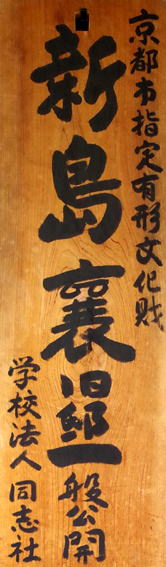 京都市指定有形文化財
新島襄旧邸一般公開
学校法人同志社